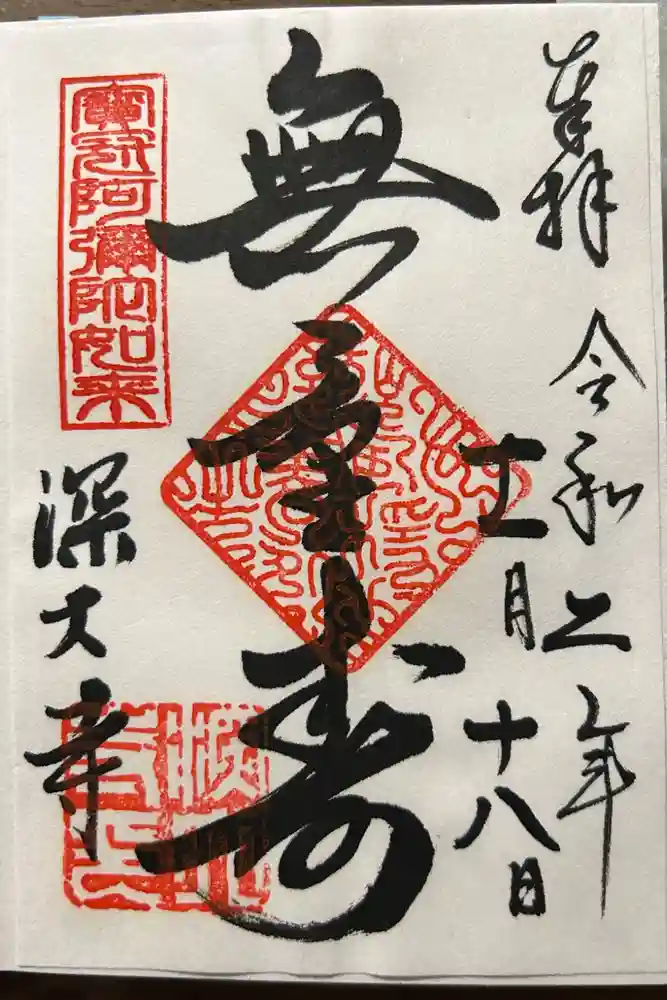 奉拝 令和二年
十一月十八日
無量寿
寶冠阿彌陀如来
深大寺